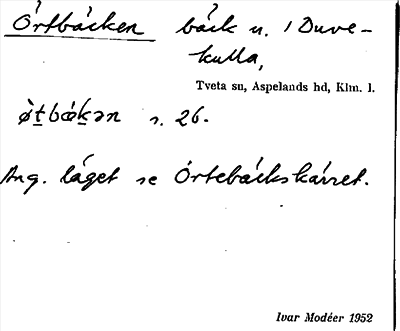 Örtbäcken bäck n. i Duve-
kulla,
Tveta sn, Aspelands hd, Klm. l.
s. 26.
Ang. läget se Örtebäckskärret.
Ivar Modéer 1952